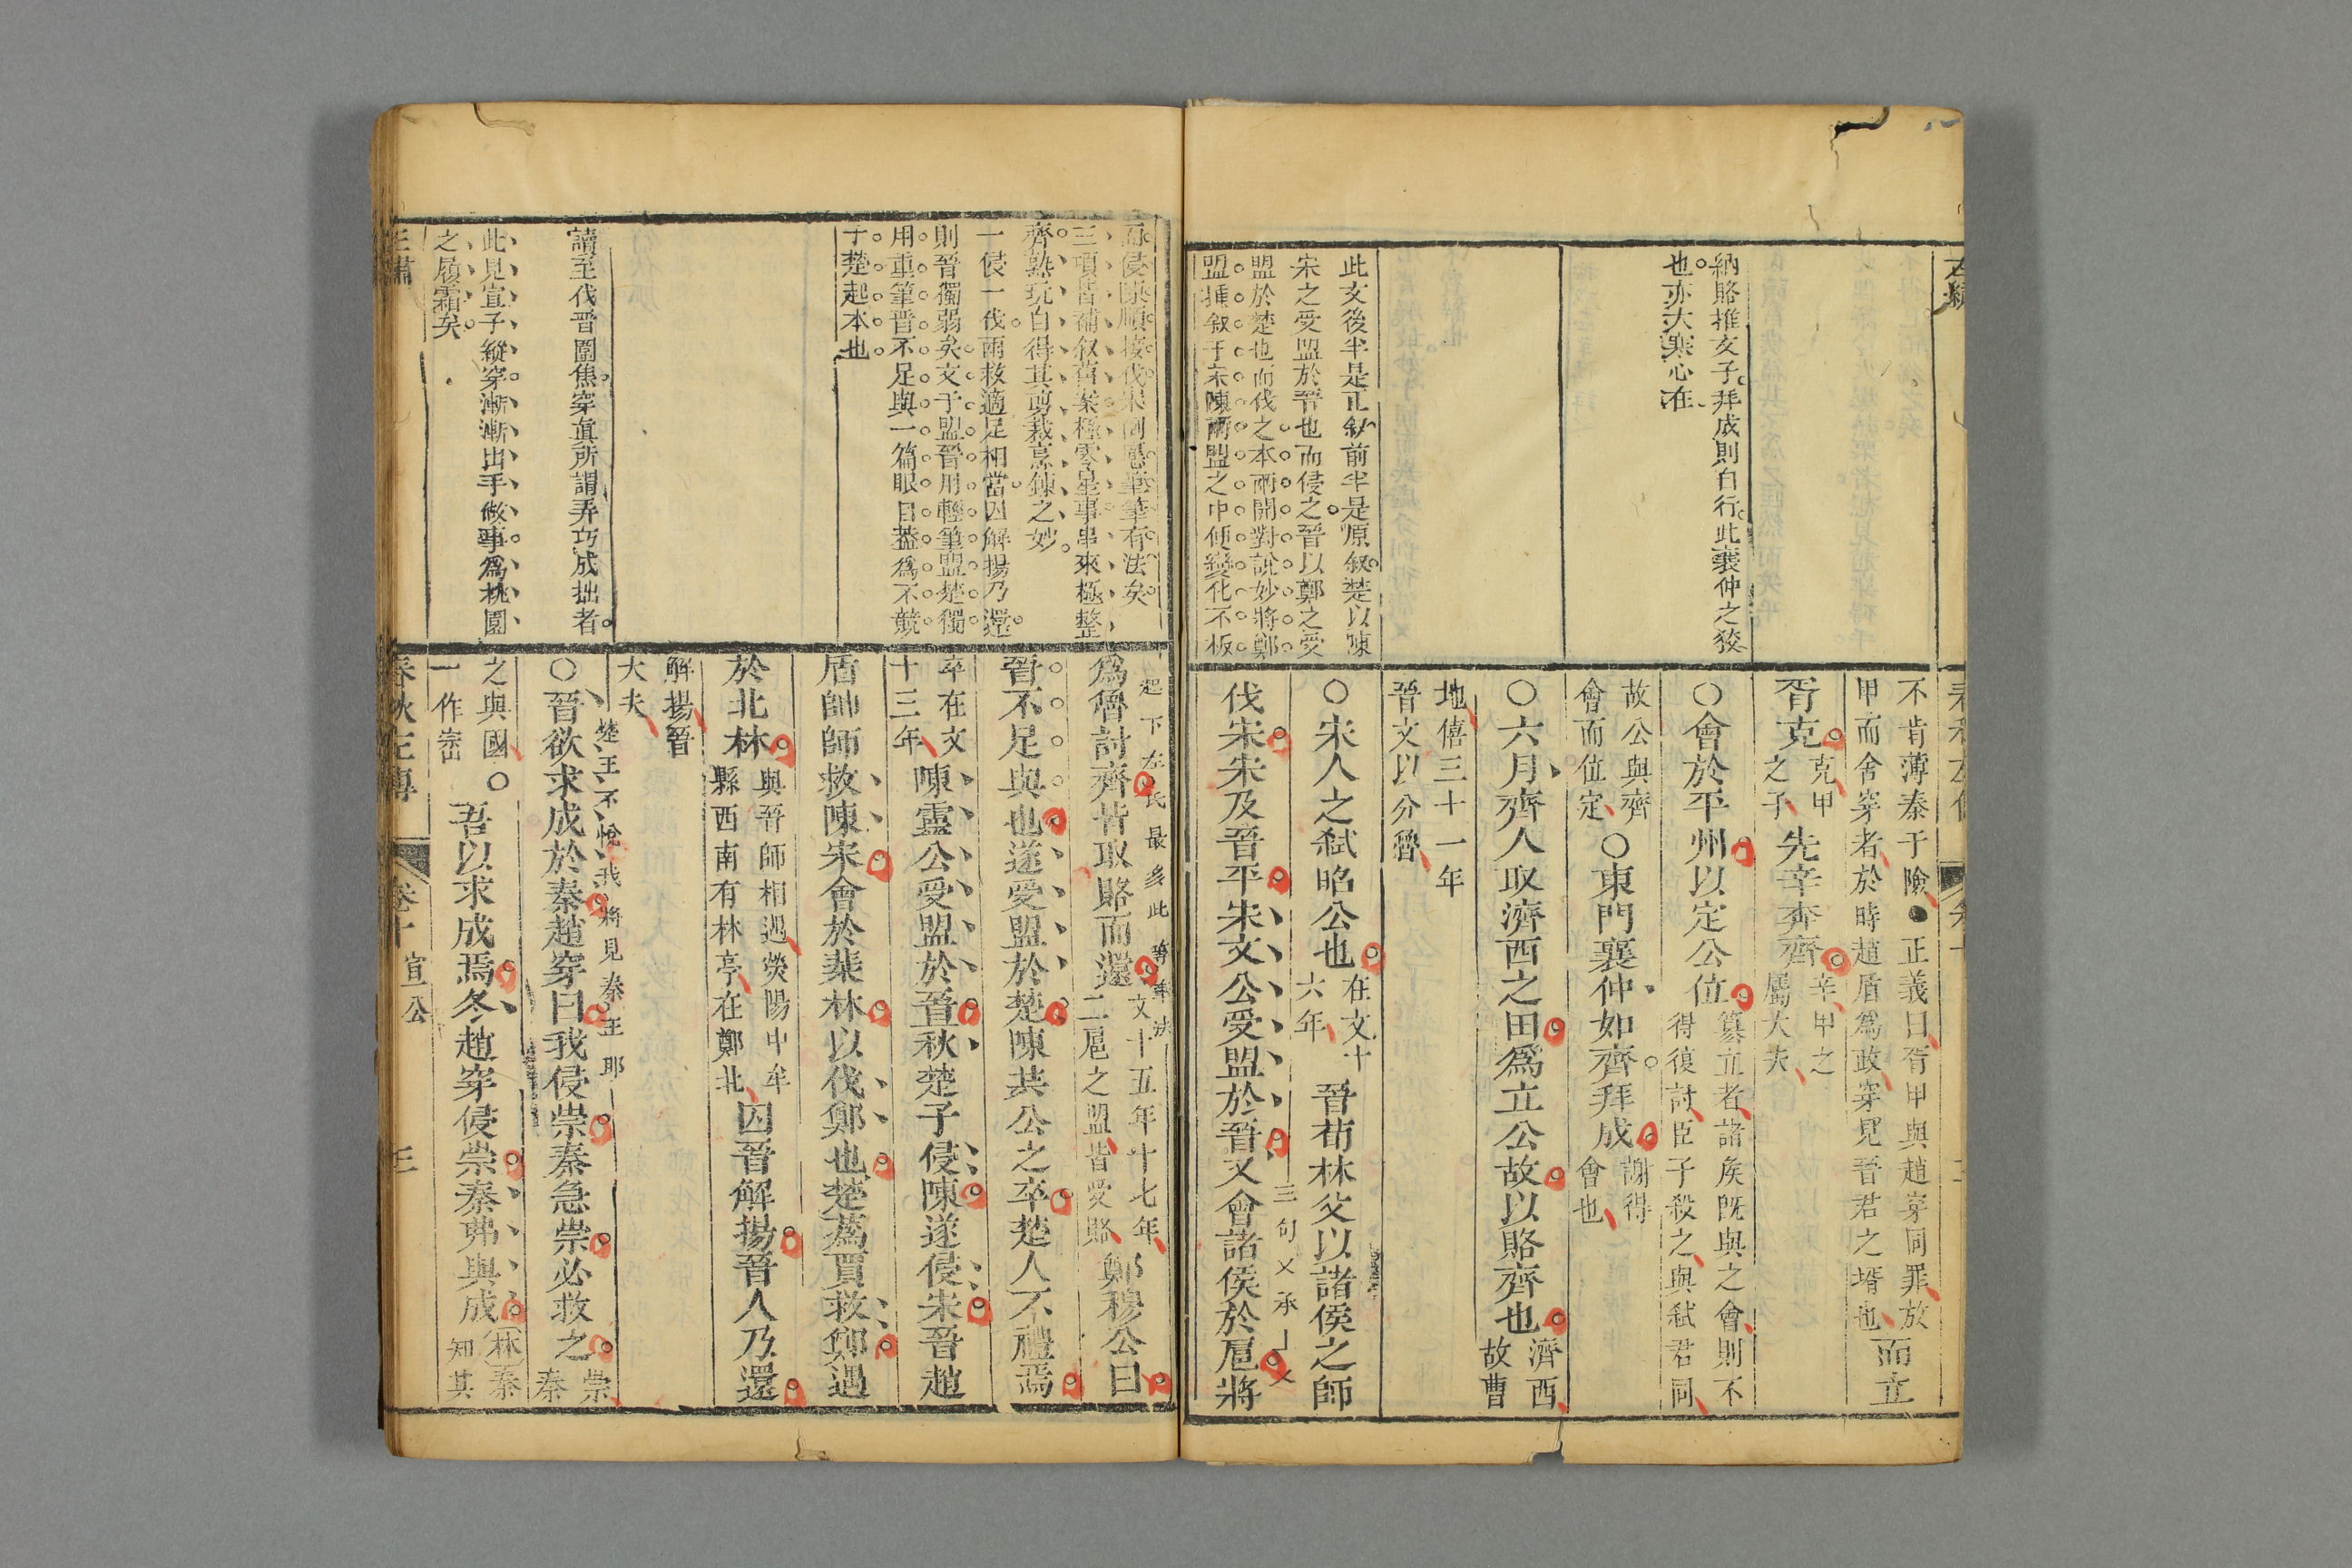 左繡
納賂推女子拜成則自行此襄仲之狡
也亦大寒心在
此文後半是正叙前半是原叙楚以陳
宋之受盟於晉也而侵之晉以鄭之受
盟於楚也而伐之本兩開對說妙將鄭
盟插叙于宋陳兩盟之中便變化不板
春秋左傳
不肯薄秦于險●正義曰胥甲與趙穿同罪放
甲而舍穿者於時趙盾爲政穿晉君之壻也而立
胥克克甲之子先辛奔齊辛甲之屬大夫
○會於平州以定公位篡立者諸矦旣與之會則不
得復討臣子殺之與弑君同
故公與齊會而位定○東門襄仲如齊拜成謝得會也
○六月齊人取濟西之田爲立公故以賂齊也濟西故曹
地僖三十一年晉文以分魯
○宋人之弑昭公也在文十六年晉荀林父以諸侯之師
伐宋宋及晉平宋文公受盟於晉又會諸侯於扈將
三句又承上文
侵陳順接伐宋
三項皆補叙舊案極零星事串來極整
齊熟玩自得其剪裁烹鍊之妙
一侵一伐兩救適足相當因解揚乃還
則晉獨弱矣文于盟晉用輕筆盟楚獨
用重筆晉不足與一篇眼目葢爲不競
于楚起本也
讀至伐晉圍焦穿眞所謂弄巧成拙者
此見宣子縱穿漸漸出手做事爲桃園
之履霜矣
起下左氏最多此等筆法
爲魯討齊皆取賂而還文十五年十七年二扈之盟皆受賂鄭穆公曰
晉不足與也遂受盟於楚陳共公之卒楚人不禮焉
卒在文十三年陳靈公受盟於晉秋楚子侵陳遂侵宋晉趙
盾帥師救陳宋會於棐林以伐鄭也楚蒍賈救鄭遇
於北林與晉師相遇滎陽中牟縣西南有林亭在鄭北囚晉解揚晉人乃還
解揚晉大夫
楚王不悅我將見秦王耶
○晉欲求成於秦趙穿曰我侵崇秦急崇必救之崇秦
之與國○一作崈吾以求成焉冬趙穿侵崇秦弗與成林秦知其
春秋左傳
卷十
宣公
三